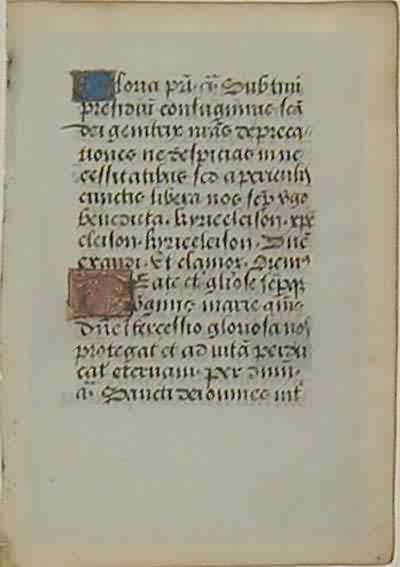 Gloria pri. a. Sub tuu
presidiu confugimus scā
dei genitrix nr̄as depreca
tiones ne despicias in ne
cessitatibus sed a periculis
cunctis libera nos semp v̄go
benedicta. kyrieleison. xpē
eleison. kyrieleison. Dn̄e
exaudi. Et clamor. Orem9
Beate et gliose semp
v̄ginis marie qm̄s
dn̄e intercessio gloriosa nos
protegat et ad vitā perdu
cat eternam. per dnm̄.
a. Sancti dei omnes int